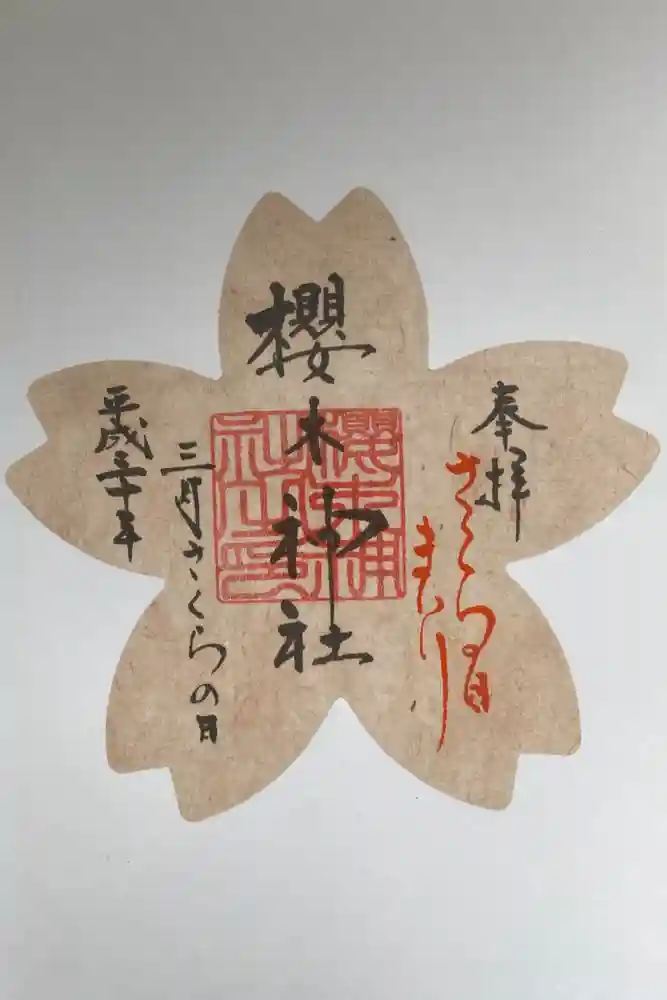 奉拝
さくらの日
まいり
櫻木神社
櫻木神社之印
平成三十年
三月さくらの日